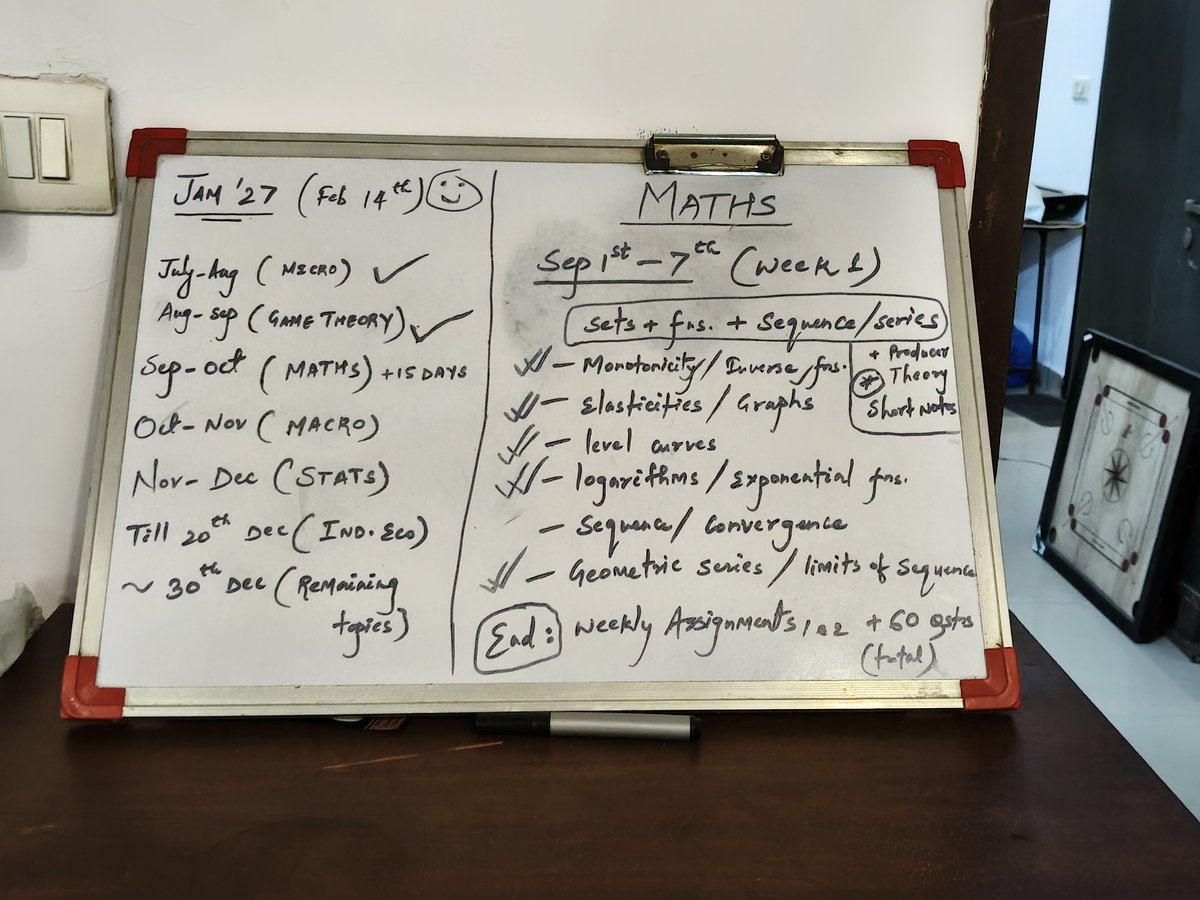 JAM '27 (Feb 14th)
July-Aug (MICRO) ✓
Aug-Sep (GAME THEORY) ✓
Sep-Oct (MATHS) +15 DAYS
Oct-Nov (MACRO)
Nov-Dec (STATS)
Till 20th Dec (IND. ECO)
~ 30th Dec (Remaining
topics)
MATHS
Sep 1st - 7th (Week 1)
Sets + fns. + Sequence/series
+ Producer
* Theory
Short Notes
- Monotonicity / Inverse fns.
- Elasticities / Graphs
- level curves
- logarithms / Exponential fns.
- Sequence / Convergence
- Geometric series / limits of Sequence
End: Weekly Assignments 1 & 2 + 60 Qstns
(total)